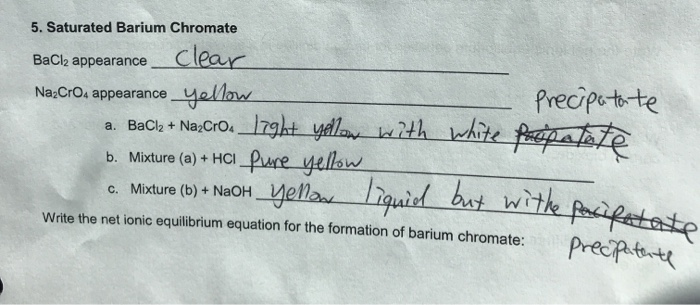 5. Saturated Barium Chromate
BaCl₂ appearance clear
Na₂CrO₄ appearance yellow
precipatate
a. BaCl₂ + Na₂CrO₄ light yellow with white
b. Mixture (a) + HCl Pure yellow
c. Mixture (b) + NaOH yellow liquid but withe
Write the net ionic equilibrium equation for the formation of barium chromate:
precipatate